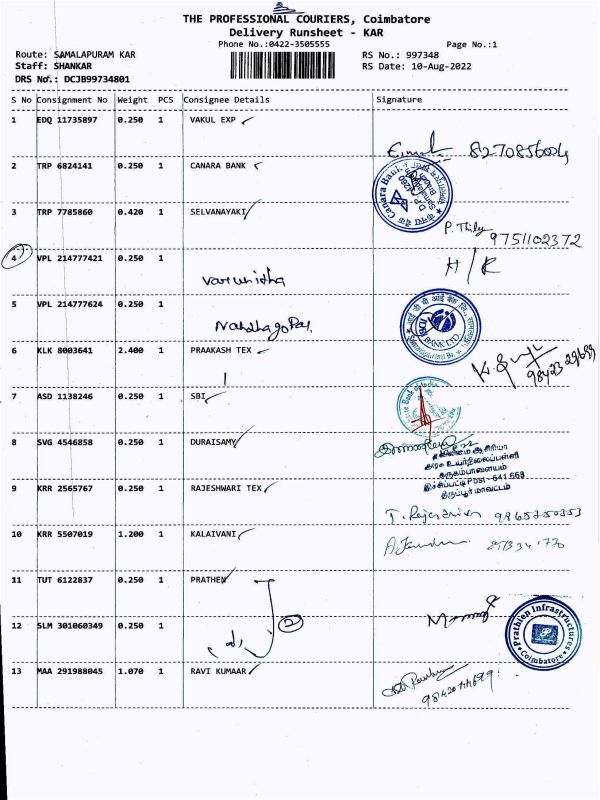 THE PROFESSIONAL COURIERS, Coimbatore
Delivery Runsheet - KAR
Phone No.:0422-3505555
Page No.:1
Route: SAMALAPURAM KAR
RS No.: 997348
Staff: SHANKAR
RS Date: 10-Aug-2022
DRS No.: DCJB99734801
S No Consignment No Weight PCS Consignee Details Signature
1 EDQ 11735897 0.250 1 VAKUL EXP
8270856004
2 TRP 6824141 0.250 1 CANARA BANK
Canara Bank
3 TRP 7785860 0.420 1 SELVANAYAKI
9751102372
4 VPL 214777421 0.250 1
H/R
5 VPL 214777624 0.250 1
IDBI BANK LTD.
6 KLK 8003641 2.400 1 PRAAKASH TEX
7 ASD 1138246 0.250 1 SBI
8 SVG 4546858 0.250 1 DURAISAMY
தலைமை ஆசிரியர்
அரசு உயர்நிலைப்பள்ளி
641 668
திருப்பூர் மாவட்டம்
9 KRR 2565767 0.250 1 RAJESHWARI TEX
10 KRR 5507019 1.200 1 KALAIVANI
11 TUT 6122837 0.250 1 PRATHEN
2
12 SLM 301060349 0.250 1
Prathien Infrastructures
Coimbatore
13 MAA 291988045 1.070 1 RAVI KUMAAR